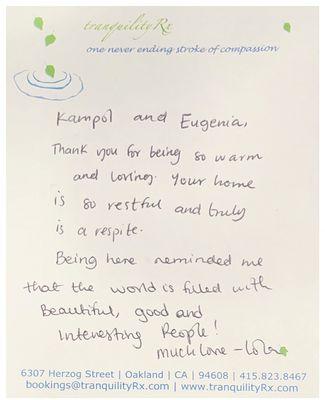 tranquilityRx
one never ending stroke of compassion
Kampol and Eugenia,
Thank you for being so warm
and loving. Your home
is so restful and truly
is a respite.
Being here reminded me
that the world is filled with
Beautiful, good and
Interesting People!
much love - Lola
6307 Herzog Street | Oakland | CA | 94608 | 415.823.8467
bookings@tranquilityRx | www.tranquilityRx.com